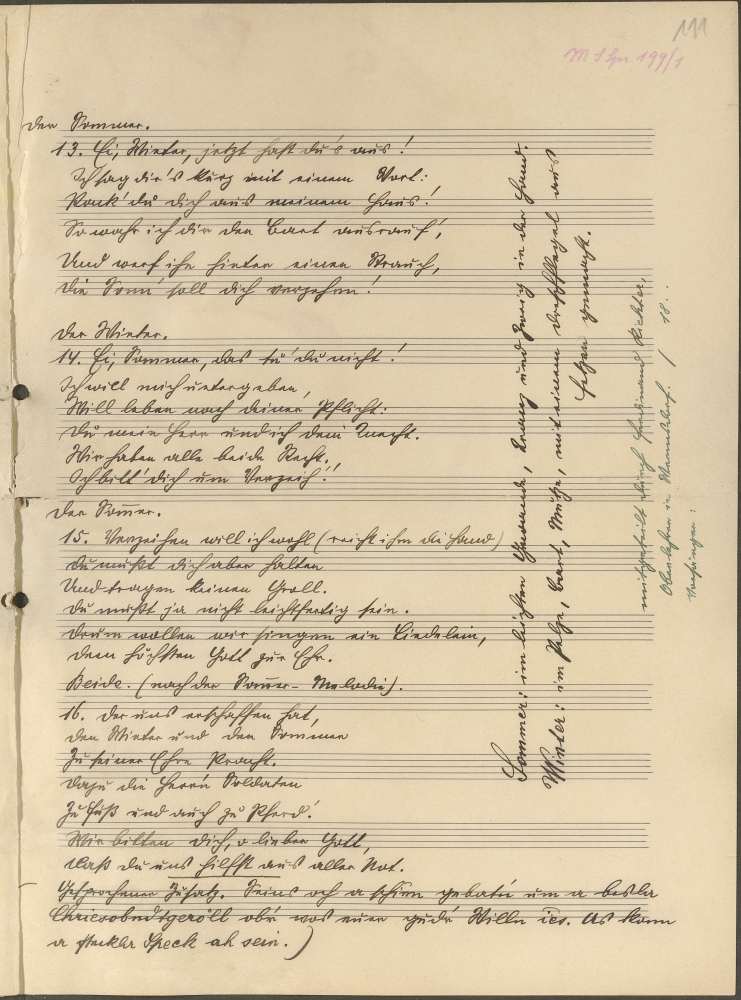 111
M 1 Spr 199/1
Der Sommer.
13. Ei, Winter, jetzt hast du's aus!
Ich sag dir's kurz mit einem Wort:
Pack' du dich aus meinem Haus!
So wahr ich dir den Bart ausrauf',
Und werf ihn hinter einen Strauch,
Die Sonn' soll dich verzehren!
Der Winter.
14. Ei, Sommer, das tu' du nicht!
Ich will mich untergeben,
Will leben nach deiner Pflicht:
Du mein Herr und ich dein Knecht.
Wir haben alle beide Recht.
Ich bitt' dich um Verzeih'!
Der Som̅er.
15. Verzeihen will ich wohl (reicht ihm die Hand)
Du mußt dich aber halten
Und tragen keinen Groll.
Du mußt ja nicht leichtfertig sein.
Drum wollen wir singen ein Liedelein,
Dem höchsten Gott zur Ehr.
Beide. (nach der Som̅er-Melodie).
16. Der uns erschaffen hat,
Den Winter und den Sommer
Zu seiner Ehre Pracht.
Dazu die Herrn Soldaten
Zu Fuß und auch zu Pferd!
Wir bitten dich, o lieber Gott,
Daß du uns hilfst aus aller Not.
Gesprochener Zusatz. Seins och a schien gebatn um a bessla
obr wos euer gudr Willn ies. As kann
a Steckla Speck ah sein.)
Sommer: im leichten Gewande, Kranz und Zweig in der Hand.
Winter: im Pelze, Bart, Mütze, mit einem Dreschflegel aus
Holze gemacht.
mitgeteilt durch Ferdinand Richter,
Oberlehrer in / 18..